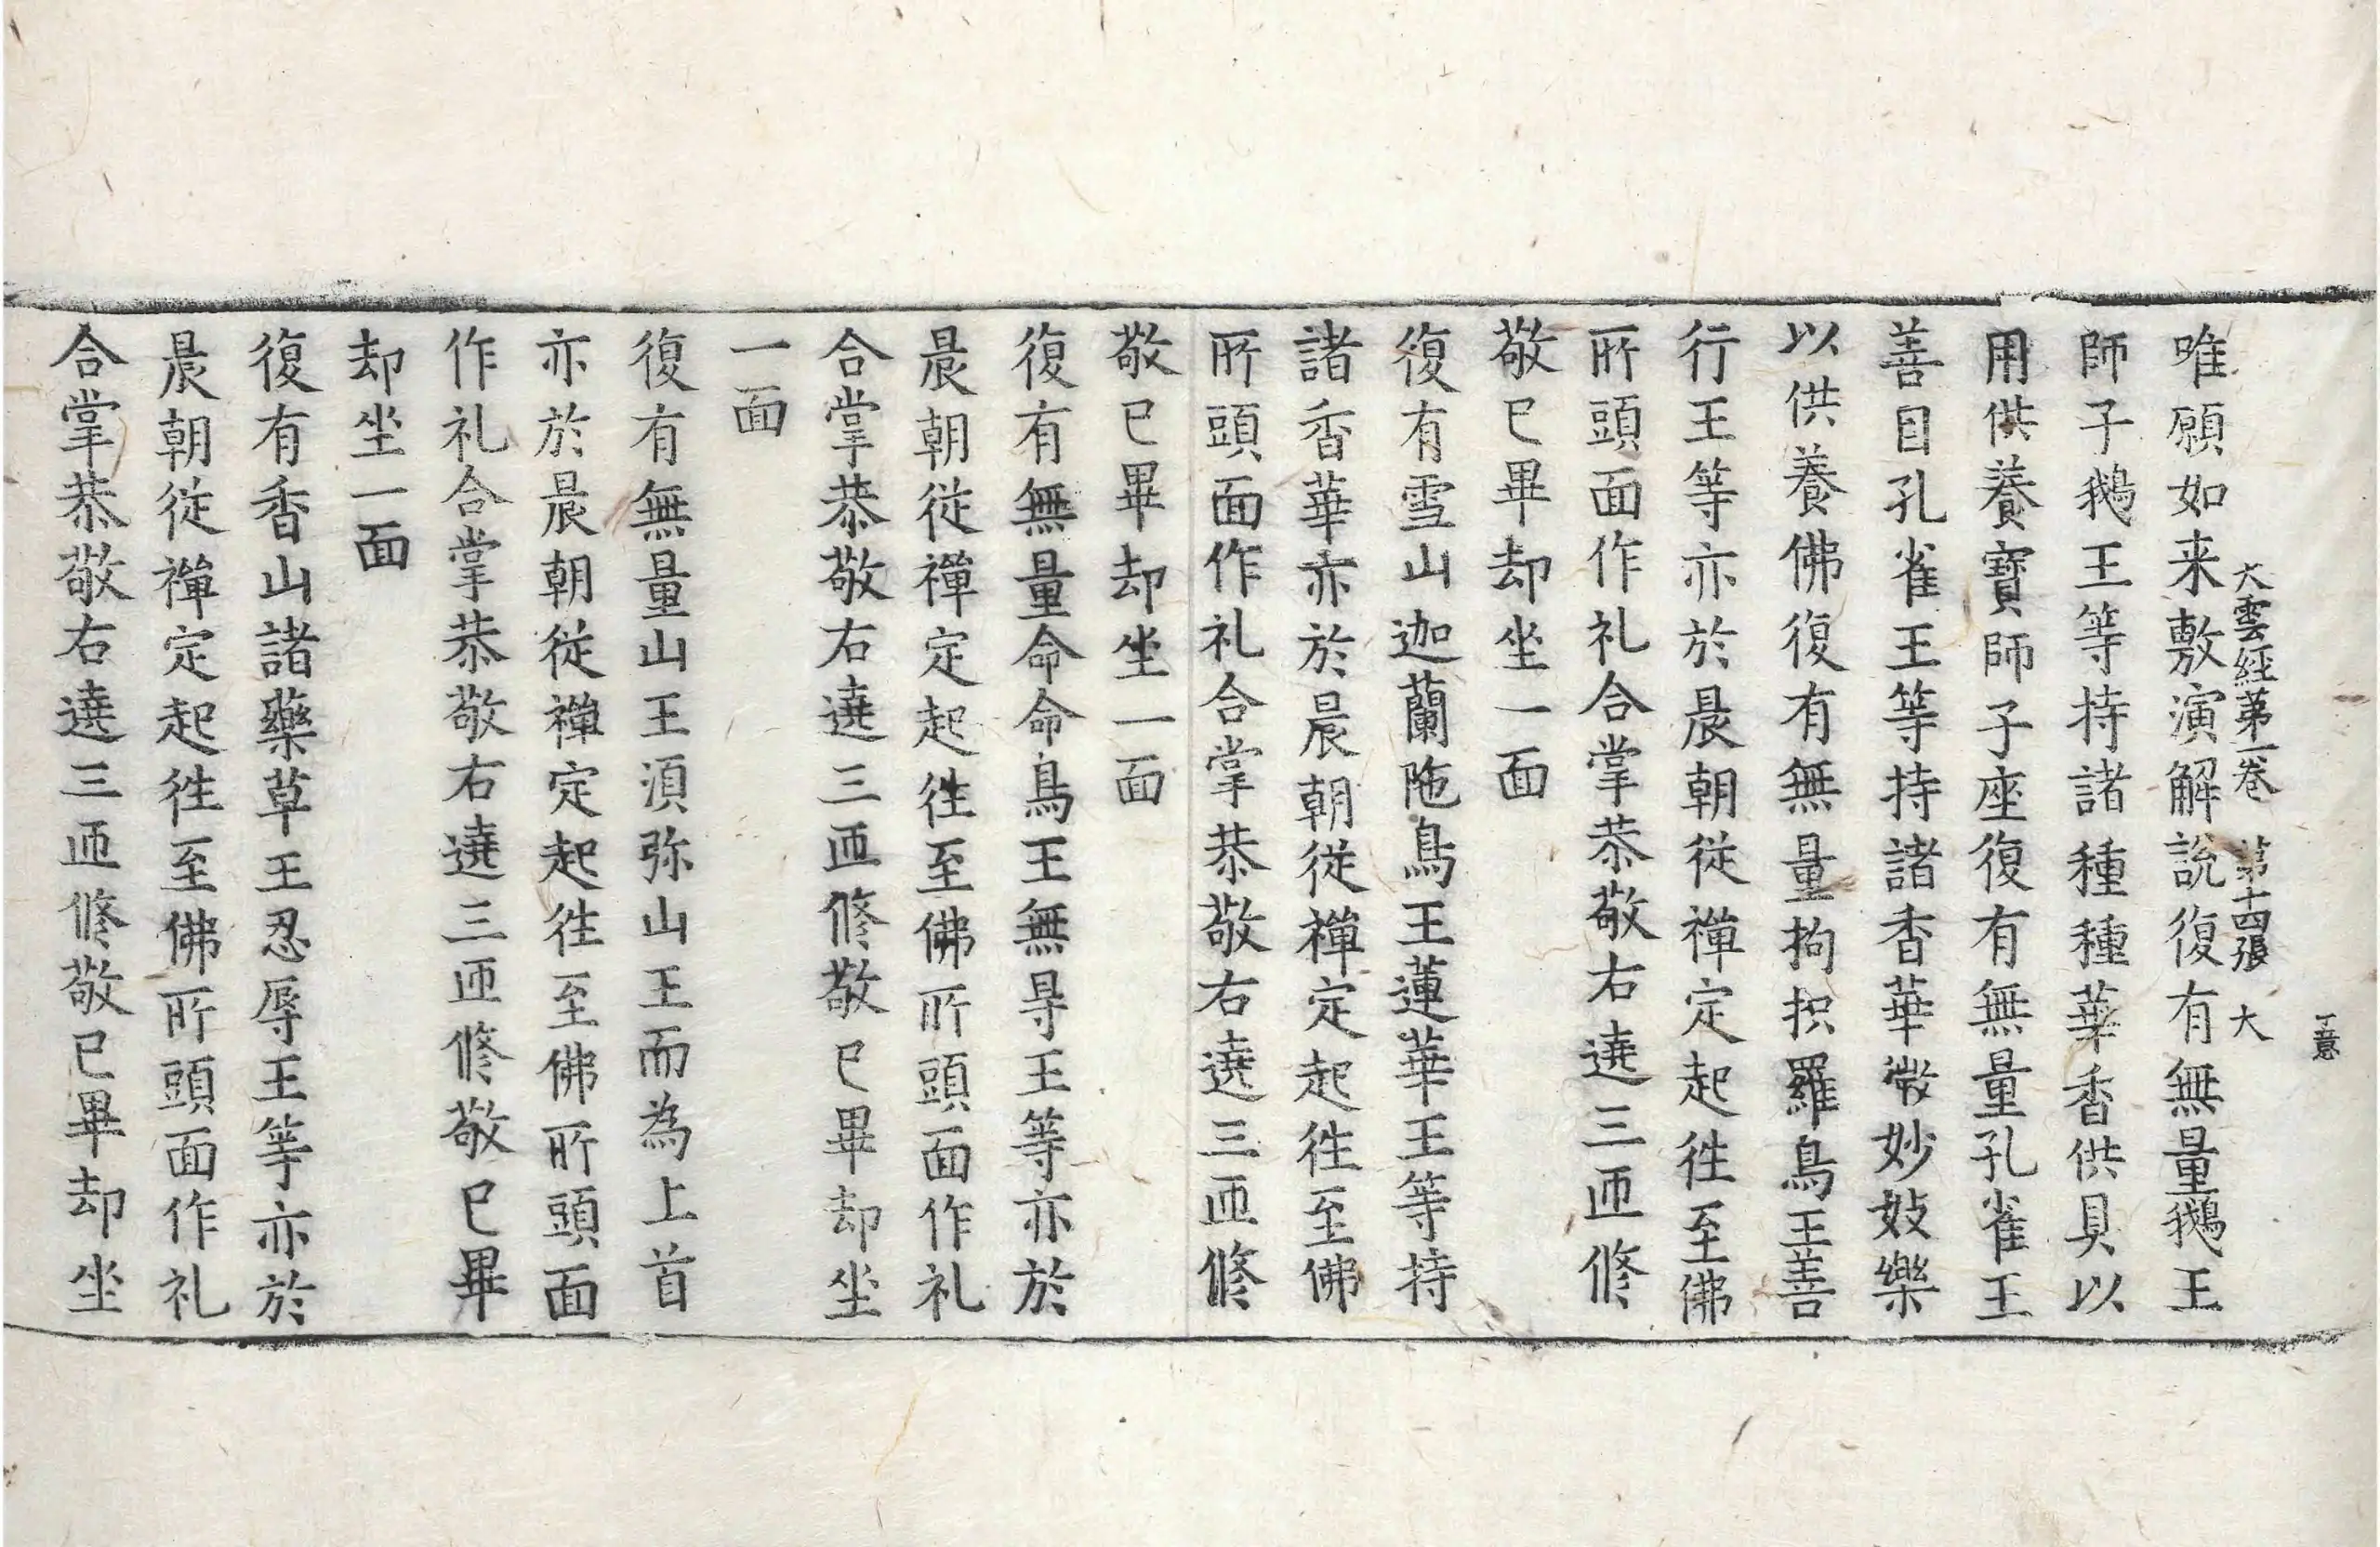 丁意
大雲經第一卷 第十四張 大
唯願如来敷演解說復有無量鵝王
師子鵝王等持諸種種華香供具以
用供養寶師子座復有無量孔雀王
善目孔雀王等持諸香華微妙妓樂
以供養佛復有無量拘抧羅鳥王善
行王等亦於晨朝從禪定起徃至佛
所頭面作礼合掌恭敬右遶三迊修
敬已畢却坐一面
復有雪山迦蘭陁鳥王蓮華王等持
諸香華亦於晨朝從禪定起徃至佛
所頭面作礼合掌恭敬右遶三迊修
敬已畢却坐一面
復有無量命命鳥王無㝵王等亦於
晨朝從禪定起徃至佛所頭面作礼
合掌恭敬右遶三迊修敬已畢却坐
一面
復有無量山王須弥山王而為上首
亦於晨朝從禪定起徃至佛所頭面
作礼合掌恭敬右遶三迊修敬已畢
却坐一面
復有香山諸藥草王忍辱王等亦於
晨朝從禪定起徃至佛所頭面作礼
合掌恭敬右遶三迊修敬已畢却坐